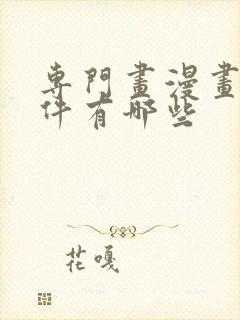 專門畫漫畫
件有哪些
花嘎